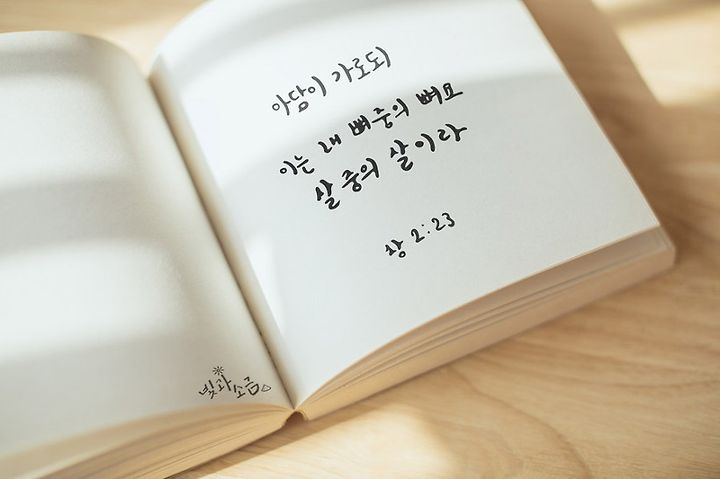 아담이 가로되
이는 내 뼈 중의 뼈요
살 중의 살이라
창 2:23
빛과
소금